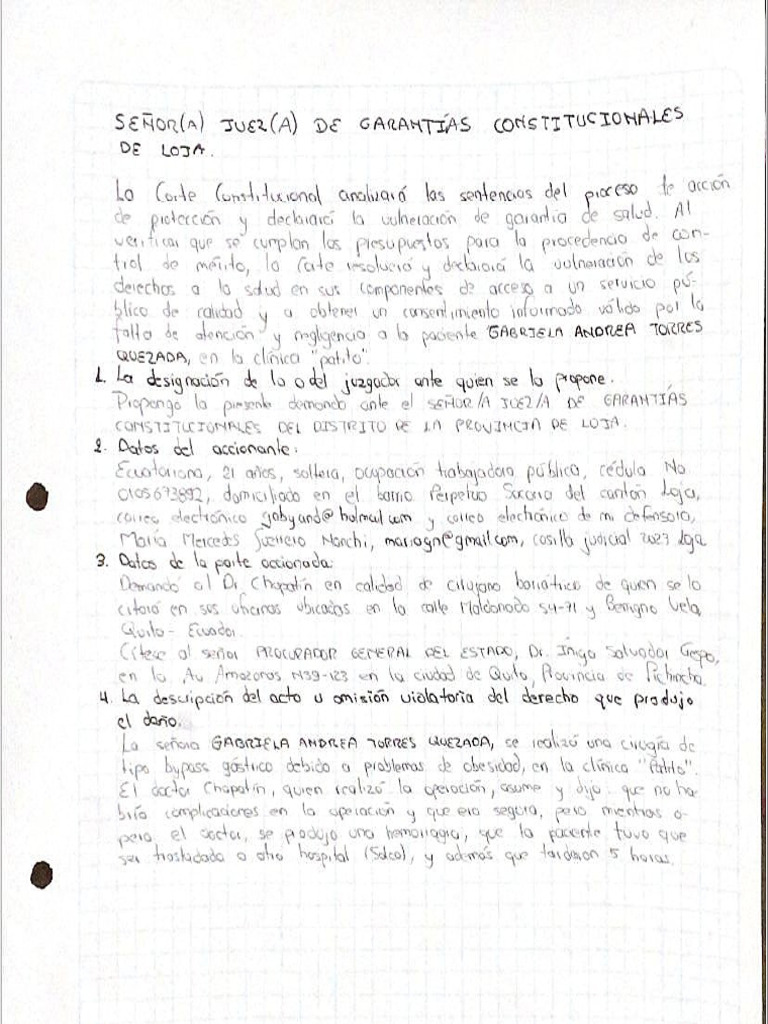 SEÑOR(A) JUEZ(A) DE GARANTÍAS CONSTITUCIONALES
DE LOJA.
La Corte Constitucional analizará las sentencias del proceso de acción
de protección y declarará la vulneración de garantía de salud. Al
verificar que se cumplan los presupuestos para la procedencia de con-
trol de mérito, la Corte resolverá y declarará la vulneración de los
derechos a la salud en sus componentes de acceso a un servicio pú-
blico de calidad y a obtener un consentimiento informado válido por la
falta de atención y negligencia a la paciente GABRIELA ANDREA TORRES
QUEZADA, en la clínica "patito".
1. La designación de la o del juzgador ante quien se la propone.
Propongo la presente demanda ante el SEÑOR/A JUEZ/A DE GARANTÍAS
CONSTITUCIONALES DEL DISTRITO DE LA PROVINCIA DE LOJA.
2. Datos del accionante:
Ecuatoriana, 21 años, soltera, ocupación trabajadora pública, cédula No
0105673892, domiciliado en el barrio Perpetuo Socorro del cantón Loja,
correo electrónico gabyand@hotmail.com y correo electrónico de mi defensora,
María Mercedes Guerrero Nanchi, mariagn@gmail.com, casilla judicial 2023 Loja
3. Datos de la parte accionada:
Demando al Dr. Chapatín en calidad de cirujano bariátrico de quien se lo
citará en sus oficinas ubicadas en la calle Maldonado S4-71 y Benigno Vela,
Quito - Ecuador.
Cítece al señor PROCURADOR GENERAL DEL ESTADO, Dr. Íñigo Salvador Crespo,
en la Av Amazonas N39-123 en la ciudad de Quito, Provincia de Pichincha.
4. La descripción del acto u omisión violatoria del derecho que produjo
el daño.
La señora GABRIELA ANDREA TORRES QUEZADA, se realizó una cirugía de
tipo bypass gástrico debido a problemas de obesidad, en la clínica "Patito".
El doctor Chapatín, quien realizó la operación, asume y dijo que no ha-
bría complicaciones en la operación y que era segura, pero mientras o-
pera el doctor, se produjo una hemorragia, que la paciente tuvo que
ser trasladada a otro hospital (Solca), y además que tardaron 5 horas.